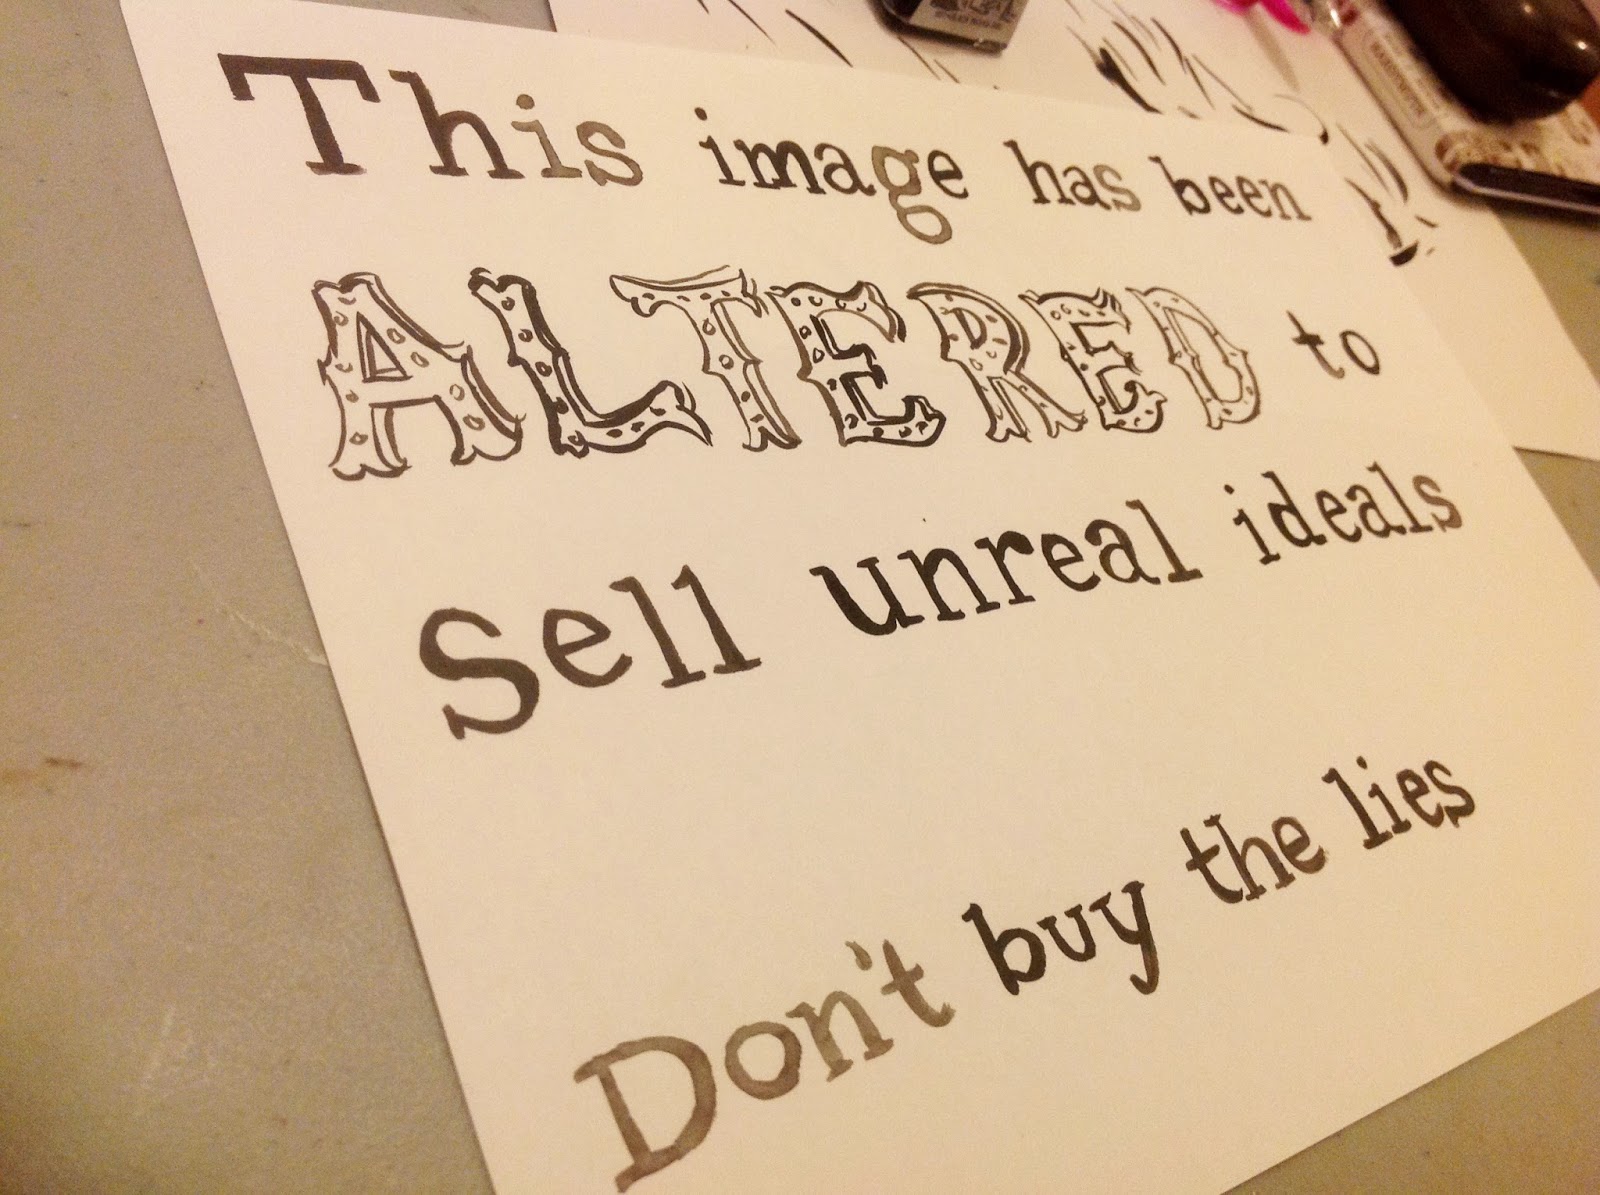 This image has been
ALTERED to
Sell unreal ideals
Don't buy the lies